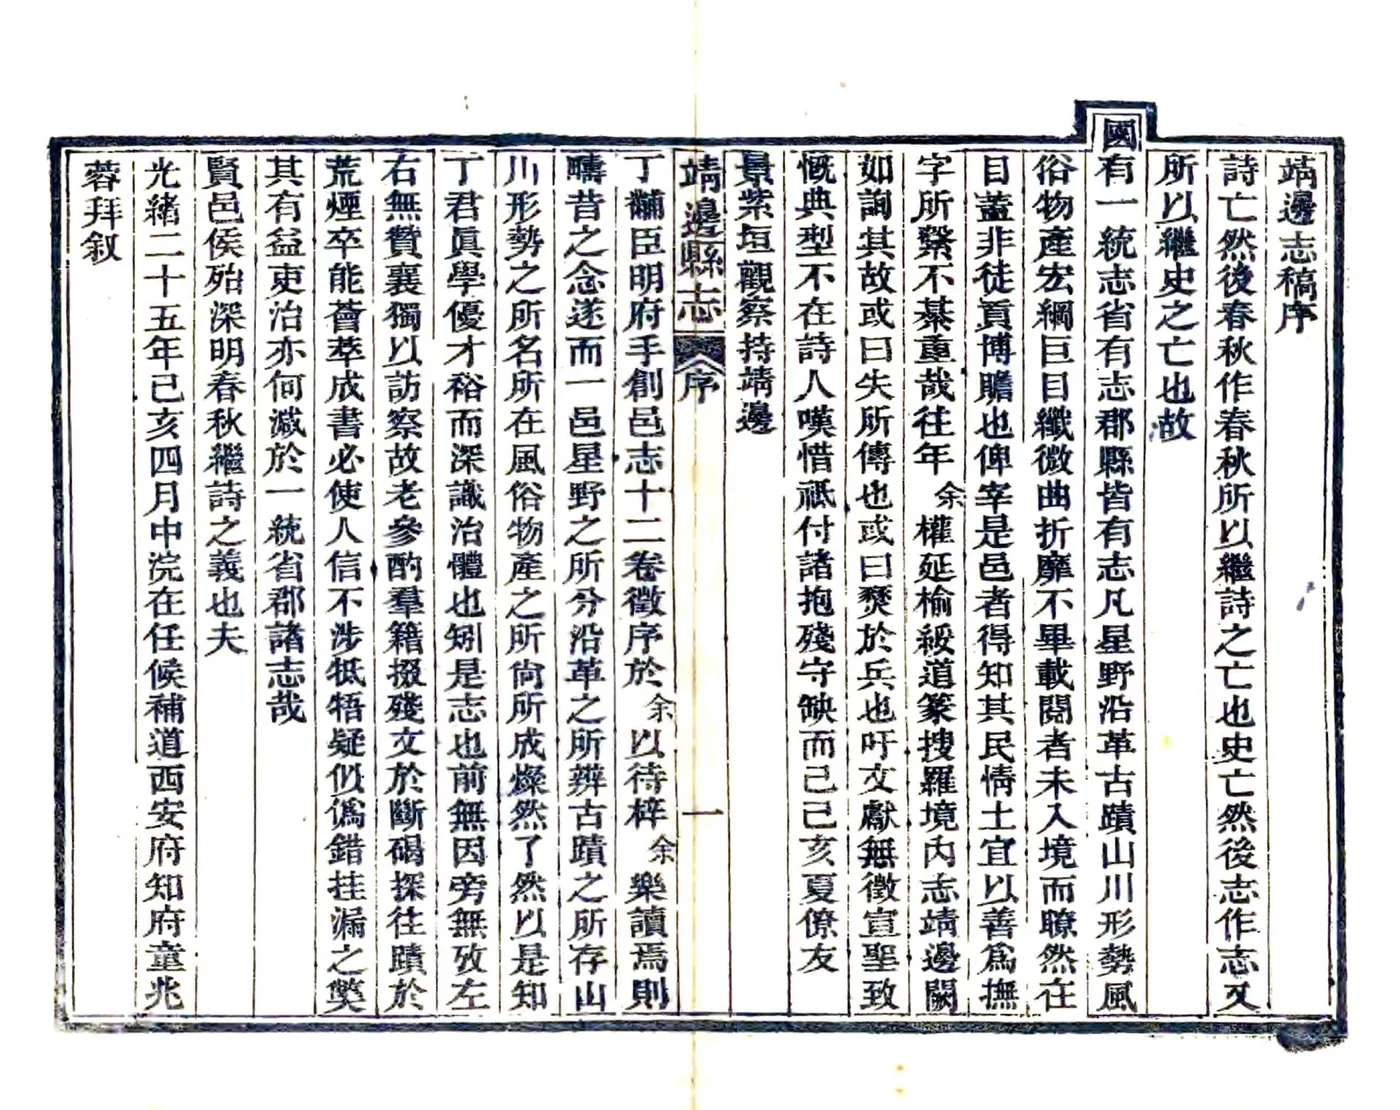 靖邊志稿序
詩亡然後春秋作春秋所以繼詩之亡也史亡然後志作志又
所以繼史之亡也故
國有一統志省有志郡縣皆有志凡星野沿革古蹟山川形勢風
俗物產宏綱巨目纖微曲折靡不畢載閱者未入境而瞭然在
目蓋非徒貢博贍也俾宰是邑者得知其民情土宜以善為撫
字所繫不綦重哉往年余權延榆綏道篆搜羅境內志靖邊闕
如詢其故或曰失所傳也或曰燹於兵也吁文獻無徵宣聖致
慨典型不在詩人嘆惜祗付諸抱殘守缺而已己亥夏僚友
景紫垣觀察持靖邊
靖邊縣志 序 一
丁黼臣明府手創邑志十二卷徵序於余以待梓余樂讀焉則
疇昔之念遂而一邑星野之所分沿革之所辨古蹟之所存山
川形勢之所名所在風俗物產之所尚所成燦然了然以是知
丁君真學優才裕而深識治體也矧是志也前無因旁無攷左
右無贊襄獨以訪察故老參酌羣籍掇殘文於斷碣探往蹟於
荒煙卒能薈萃成書必使人信不涉牴牾疑似僞錯挂漏之獘
其有益吏治亦何減於一統省郡諸志哉
賢邑侯殆深明春秋繼詩之義也夫
光緒二十五年己亥四月中浣在任候補道西安府知府童兆
蓉拜叙